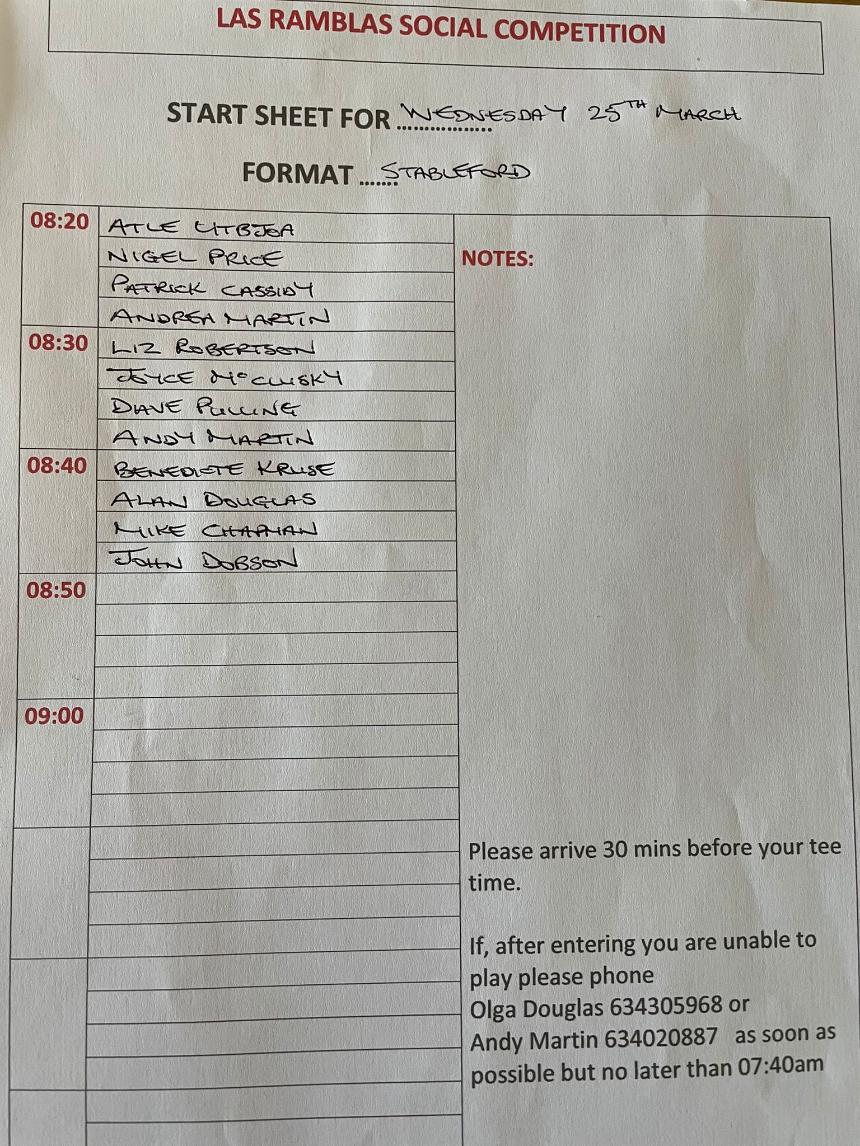 LAS RAMBLAS SOCIAL COMPETITION
START SHEET FOR WEDNESDAY 25TH MARCH
FORMAT STABLEFORD
08:20 ATLE UTBJOA
NIGEL PRICE
PATRICK CASSIDY
ANDREA MARTIN
08:30 LIZ ROBERTSON
JOYCE McCLUSKY
DAVE PULLING
ANDY MARTIN
08:40 BENEDICTE KRUSE
ALAN DOUGLAS
MIKE CHAPMAN
JOHN DOBSON
08:50
09:00
NOTES:
Please arrive 30 mins before your tee
time.
If, after entering you are unable to
play please phone
Olga Douglas 634305968 or
Andy Martin 634020887 as soon as
possible but no later than 07:40am